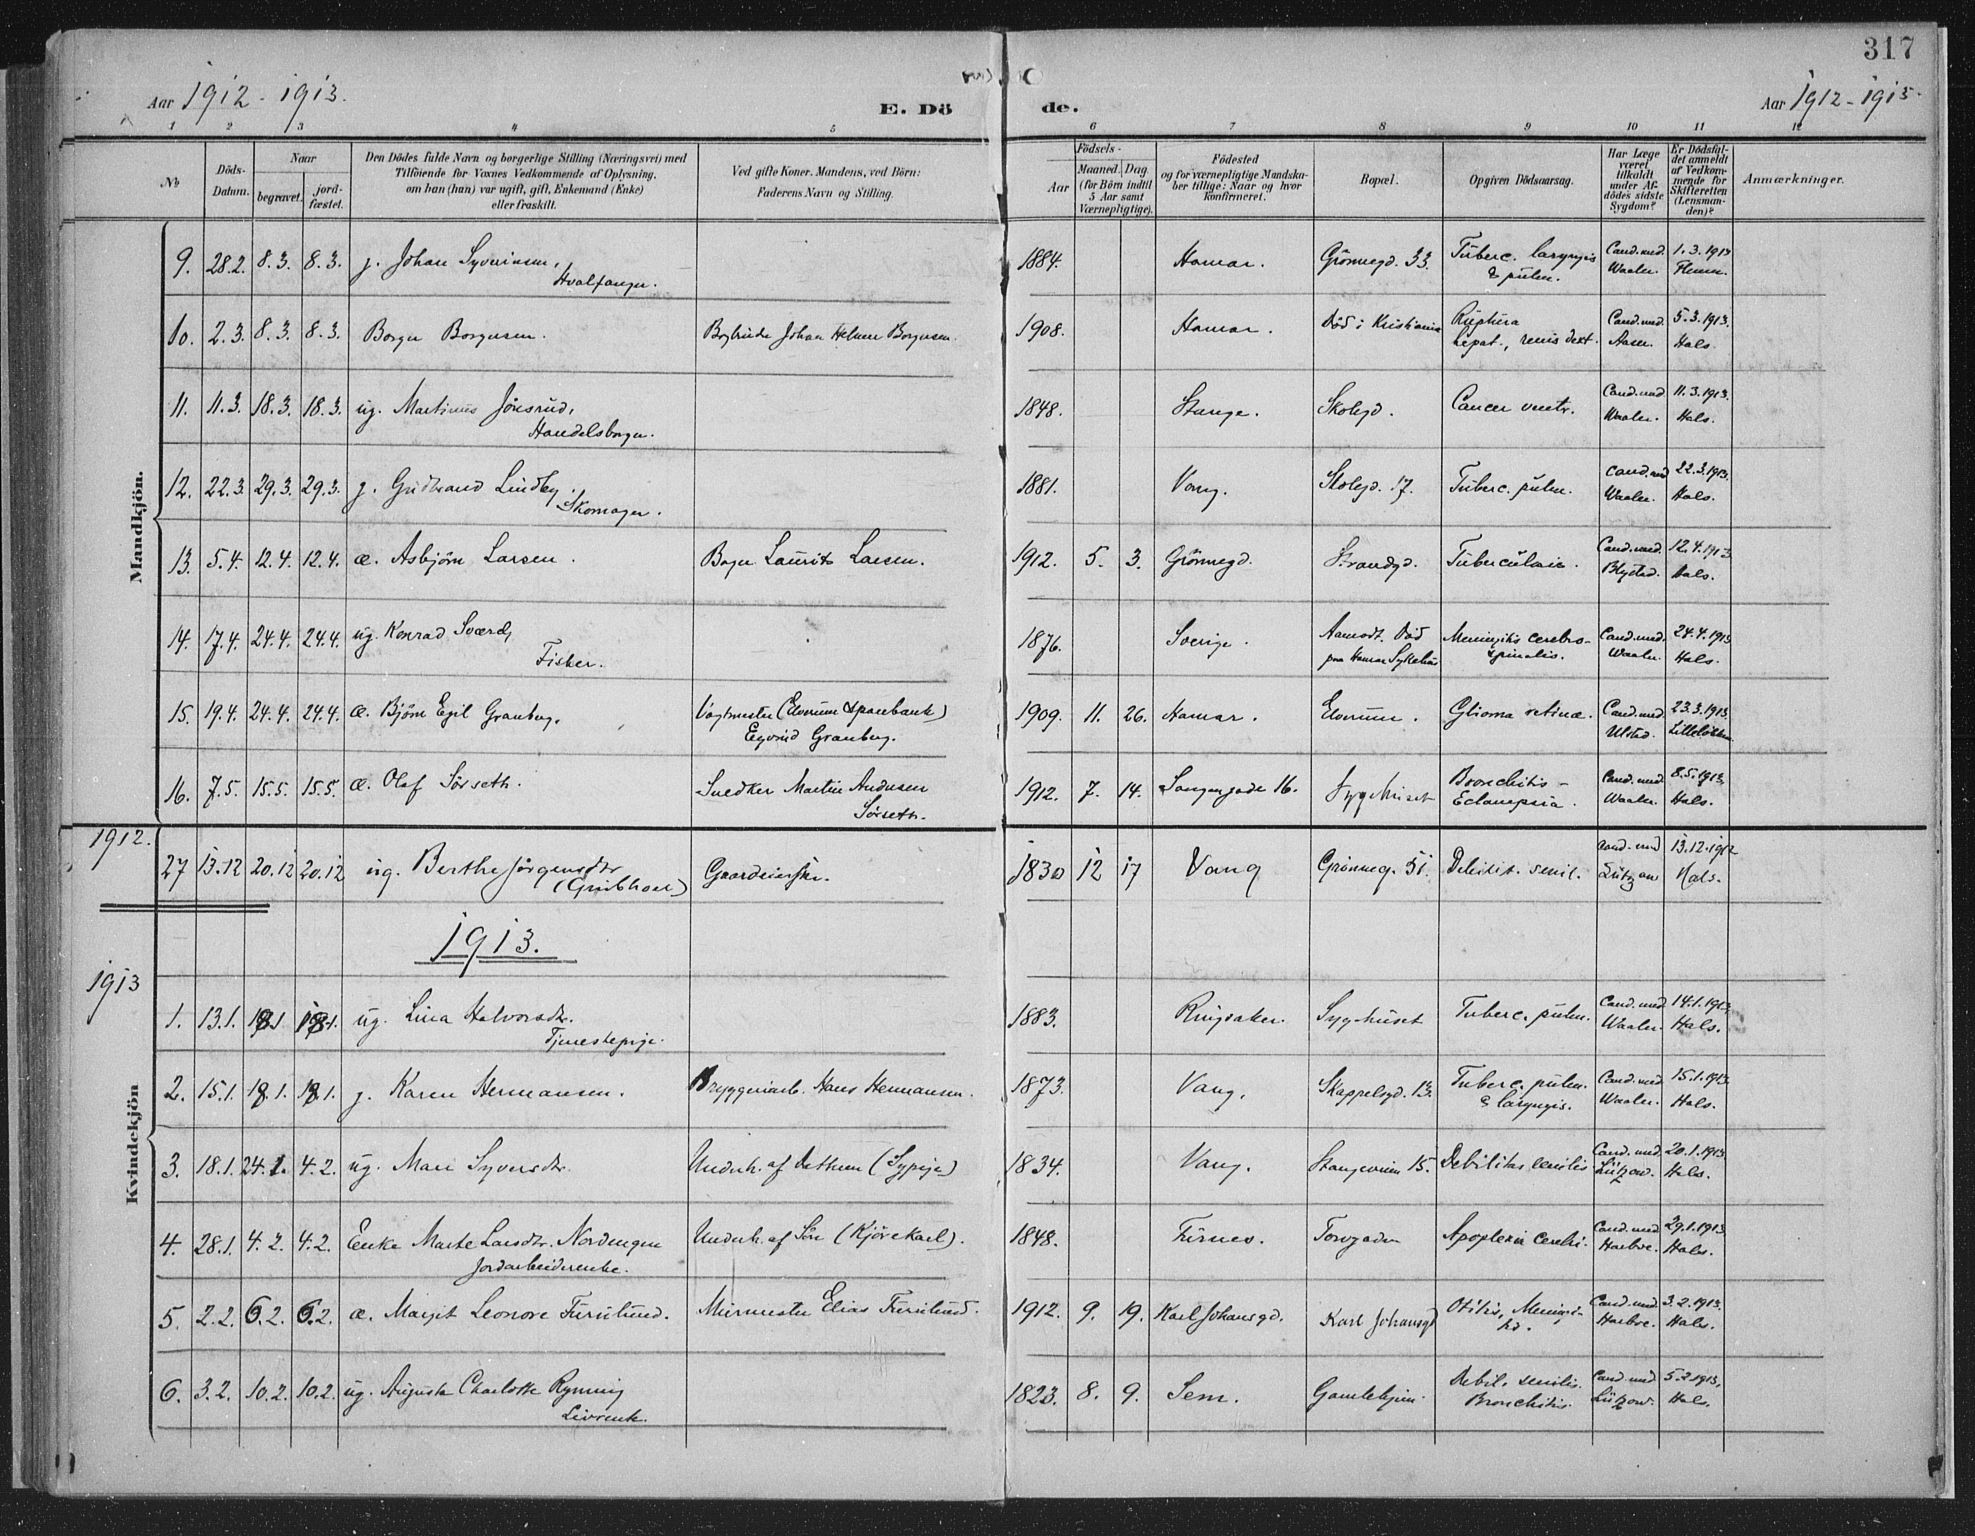 317
Aar 1912 - 1913.
E. Dö
de.
Aar 1912 - 1913.
1 2 3 4 5 6 7 8 9 10 11 12
No
Döds-Datum.
Naar
begravet.
jord-fæstet.
Den Dödes fulde Navn og borgerlige Stilling (Næringsvei) med
Tilföiende for Voxnes Vedkommende af Oplysning,
om han (hun) var ugift, gift, Enkemand (Enke)
eller fraskilt.
Ved gifte Koner: Mandens, ved Börn:
Faderens Navn og Stilling.
Födsels-
Aar
Maaned. Dag
(for Börn indtil
5 Aar samt
Værnepligtige).
Födested
og for værnepligtige Mandska-
ber tillige: Naar og hvor
konfirmeret.
Bopæl.
Opgiven Dödsaarsag.
Har Læge
været
tilkaldt
under Af-
dödes sidste
Sygdom?
Er Dödsfal-
det anmeldt
af Vedkom-
mende for
Skifteretten
(Lensman-
den)?
Anmærkninger.
Mandkjön.
9. 28.2. 8.3. 8.3. g. Johan Syverinsen, Hvalfanger. 1884. Hamar. Grönnegd. 33. Tuberc. laryngis & pulm. Cand. med. Waaler. 1.3.1913
10. 2.3. 8.3. 8.3. Borger Borgersen. Johan Helmer Borgersen. 1908. Hamar. Död i Kristiania Ruptura hepat., renis dext. Cand. med. Aaser. 5.3.1913. Hals.
11. 11.3. 18.3. 18.3. ug. Martinus Jönsrud, Handelsborger. 1848. Stange. Skolegd. Cancer ventr. Cand. med Waaler. 11.3.1913. Hals.
12. 22.3. 29.3. 29.3. g. Gudbrand Lindby, Skomager. 1881. Vang. Skolegd. 17. Tuberc. pulm. Cand. med Waaler. 22.3.1913. Hals.
13. 5.4. 12.4. 12.4. æ. Asbjörn Larsen. Bager Laurits Larsen. 1912. 5. 3. Grönnegd. Strandgd. Tuberculosis. Cand. med. Blystad. 12.4.1913 Hals.
14. 17.4. 24.4. 24.4. ug. Konrad Sværd, Fisker. 1876. Sverige. Aamodt. Död paa Hamar Sykehus Meningitis cerebro-spinalis. Cand. med. Waaler. 24.4.1913 Hals.
15. 19.4. 24.4. 24.4. æ. Björn Egil Granberg. Vagtmester (Elverum Sparebank) Eyvind Granberg. 1909. 11. 26. Hamar. Elverum. Glioma retinæ. Cand. med. Ulstad. 23.3.1913.
16. 7.5. 15.5. 15.5. æ. Olaf Sörseth. Snedker Martin Andersen Sörseth. 1912. 7. 14. Sangergade 16. Sygehuset Bronchitis - Eclampsia. Cand. med Waaler. 8.5.1913. Hals.
1912.
27 13.12 20.12 20.12 ug. Berthe Jörgensdtr. Gaardeierske. 1830 12 17 Vang Grönneg. 51. Debilit. senil. Cand. med Lützow 13.12.1912 Hals.
1913.
1913
Kvindekjön
1. 13.1. 18.1 18.1. ug. Lina Halvorsdtr. Tjenestepige. 1883. Ringsaker. Sygehuset Tuberc. pulm. Cand. med Waaler. 14.1.1913. Hals.
2. 15.1. 18.1. 18.1. g. Karen Hermansen. Bryggeriarb. Hans Hermansen. 1873. Vang. Skappelsgd. 13. Tuberc. pulm. & laryngis. Cand. med Waaler. 15.1.1913. Hals.
3. 18.1. 24.1. 4.2. ug. Mari Syversdtr. Underh. af (Sypige) 1834. Vang. Stangeveien 15. Debilitas senilis Cand. med. Lützow. 20.1.1913. Hals.
4. 28.1. 4.2. 4.2. Enke Marte Larsdtr. Nordengen Jordarbeiderenke. Underh. af Sön (Kjörekarl). 1848. Furnes. Torvgaden Apoplexia cerebri. Cand. med Harboe. 29.1.1913. Hals.
5. 2.2. 6.2. 6.2. æ. Margit Leonore Furulund. Murmester Elias Furulund. 1912. 9. 19. Karl Johansgd. Karl Johansgd Otitis, Meningitis. Cand. med. Harboe. 3.2.1913. Hals.
6. 3.2. 10.2. 10.2. ug. Augusta Charlotte Rynning Livrente. 1823. 8. 9. Sem. Gamlehjem. Debil. senilis. Bronchitis. Cand. med Lützow. 5.2.1913. Hals.